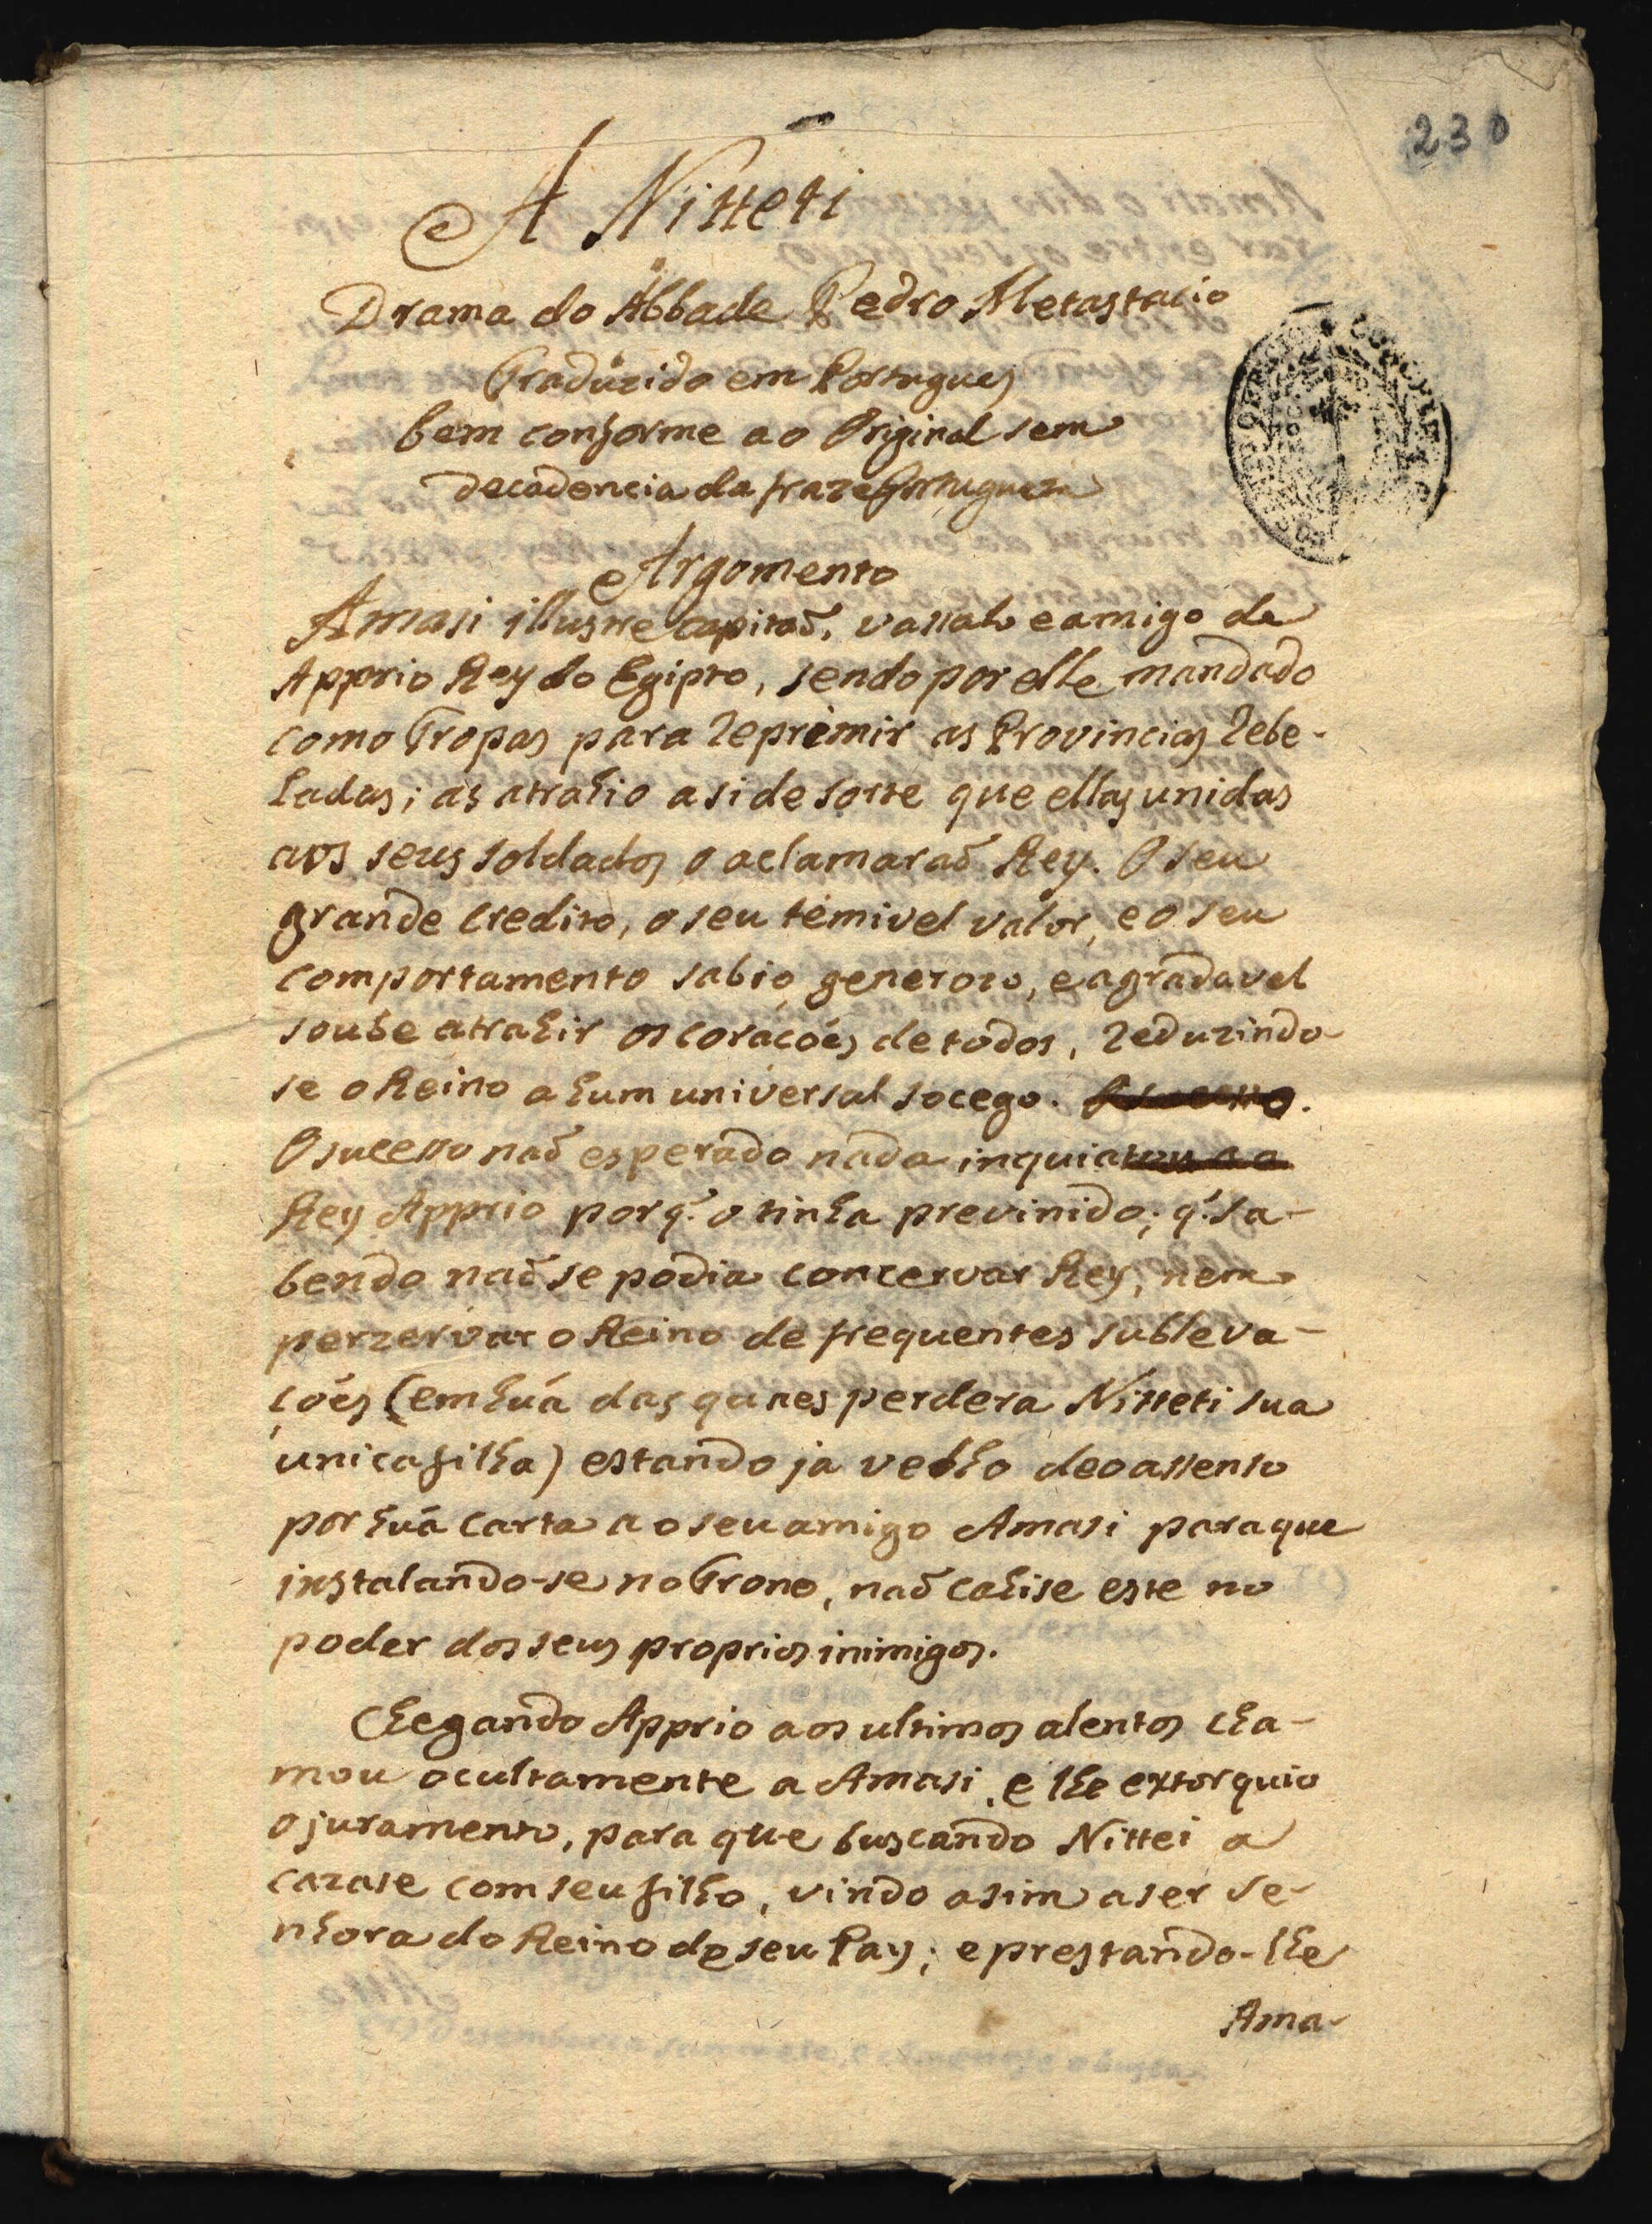 230
A Nitteti
Drama do Abbade Pedro Metastacio
Traduzido em Portugues
bem conforme ao Original sem
decadencia da fraze Portugueza
Argomento
Amasi illustre capitaõ, vassalo e amigo de
Apprio Rey do Egipto, sendo por elle mandado
como Tropas para reprimir as Provincias rebe-
ladas; as atrahio a si de sorte que ellas unidas
aos seus soldados o aclamaraõ Rey. O seu
grande credito, o seu temivel valor, e o seu
comportamento sabio, generozo, e agradavel
soube atrahir os coracoés de todos, reduzindo
se o Reino a hum universal socego. O sucesso.
O sucesso naõ esperado nada inquiatou a o
Rey Apprio porq̃. o tinha previnido; q̃. sa-
bendo naõ se podia concervar Rey, nem
perzervar o Reino de frequentes subleva-
çoés (em huá das quaes perdera Nitteti sua
unica filha) estando ja velho deo assenso
por huá carta ao seu amigo Amasi para que
instalando-se no Trono, naõ cahise este no
poder dos seus proprios inimigos.
Chegando Apprio aos ultimos alentos cha-
mou ocultamente a Amasi, e lhe extorquio
o juramento, para que buscando Nittei a
cazase com seu filho, vindo asim a ser Se-
nhora do Reino de seu Pay; e prestando-lhe
Ama-